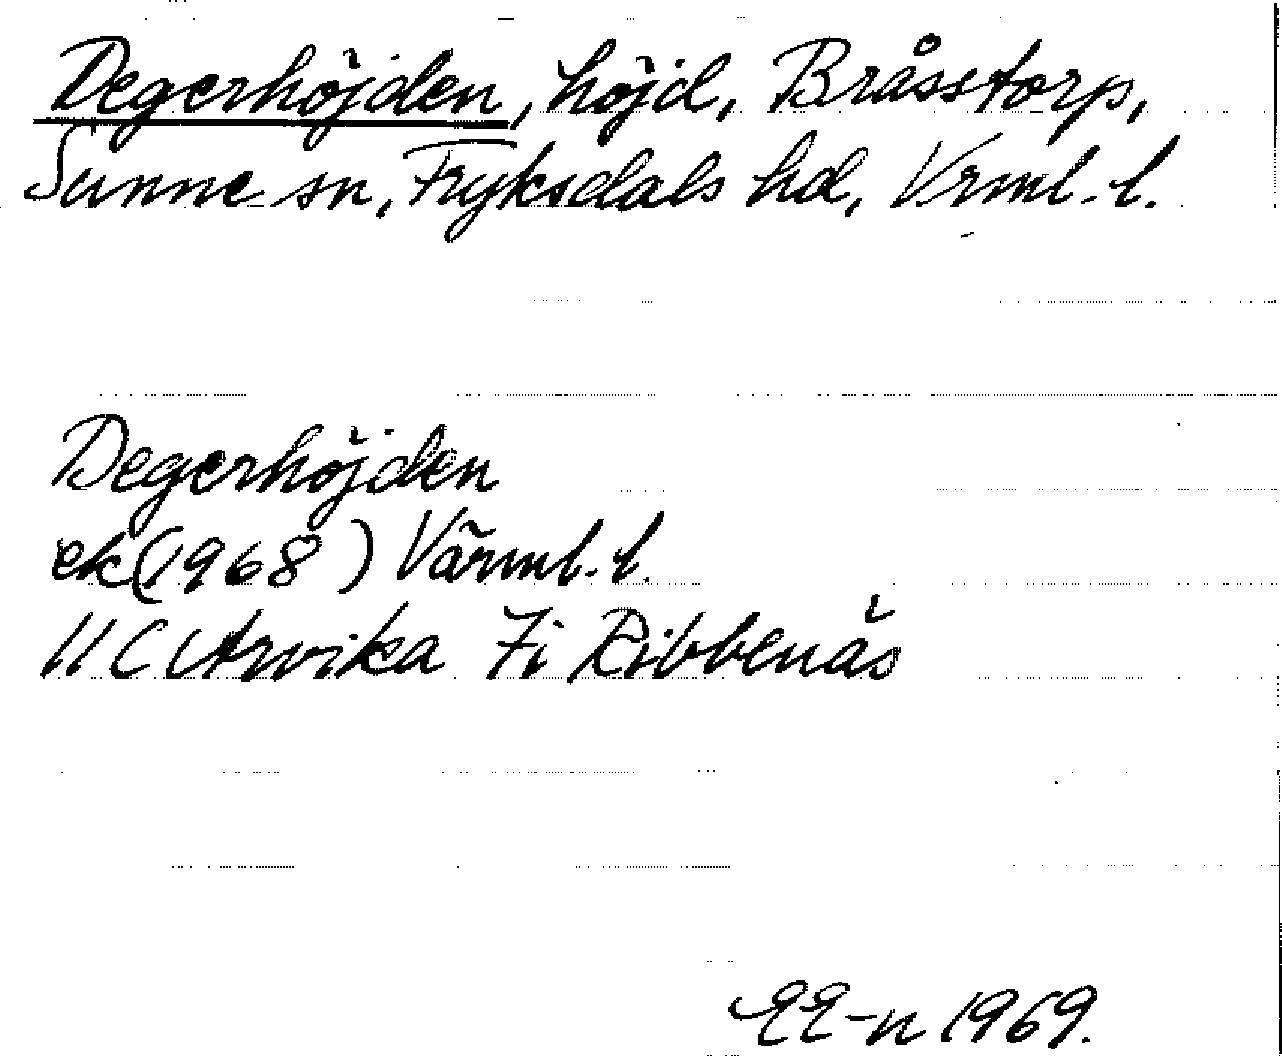 Degerhöjden, höjd, Bråsstorp,
Sunne sn, Fryksdals hd, Vrml. l.
Degerhöjden
ek (1968) Värml. l.
11C Arvika 7i Ribbenäs
EE-n 1969.